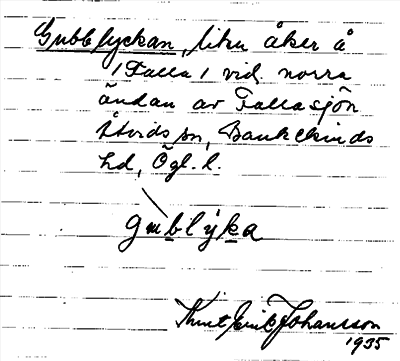 Gubblyckan, liten åker å
/Falla/ vid norra
ändan av Fallasjön
Åtvids sn, Bankekinds
hd, Ögl. l.
gublyka
Knut Erik Johansson
1935